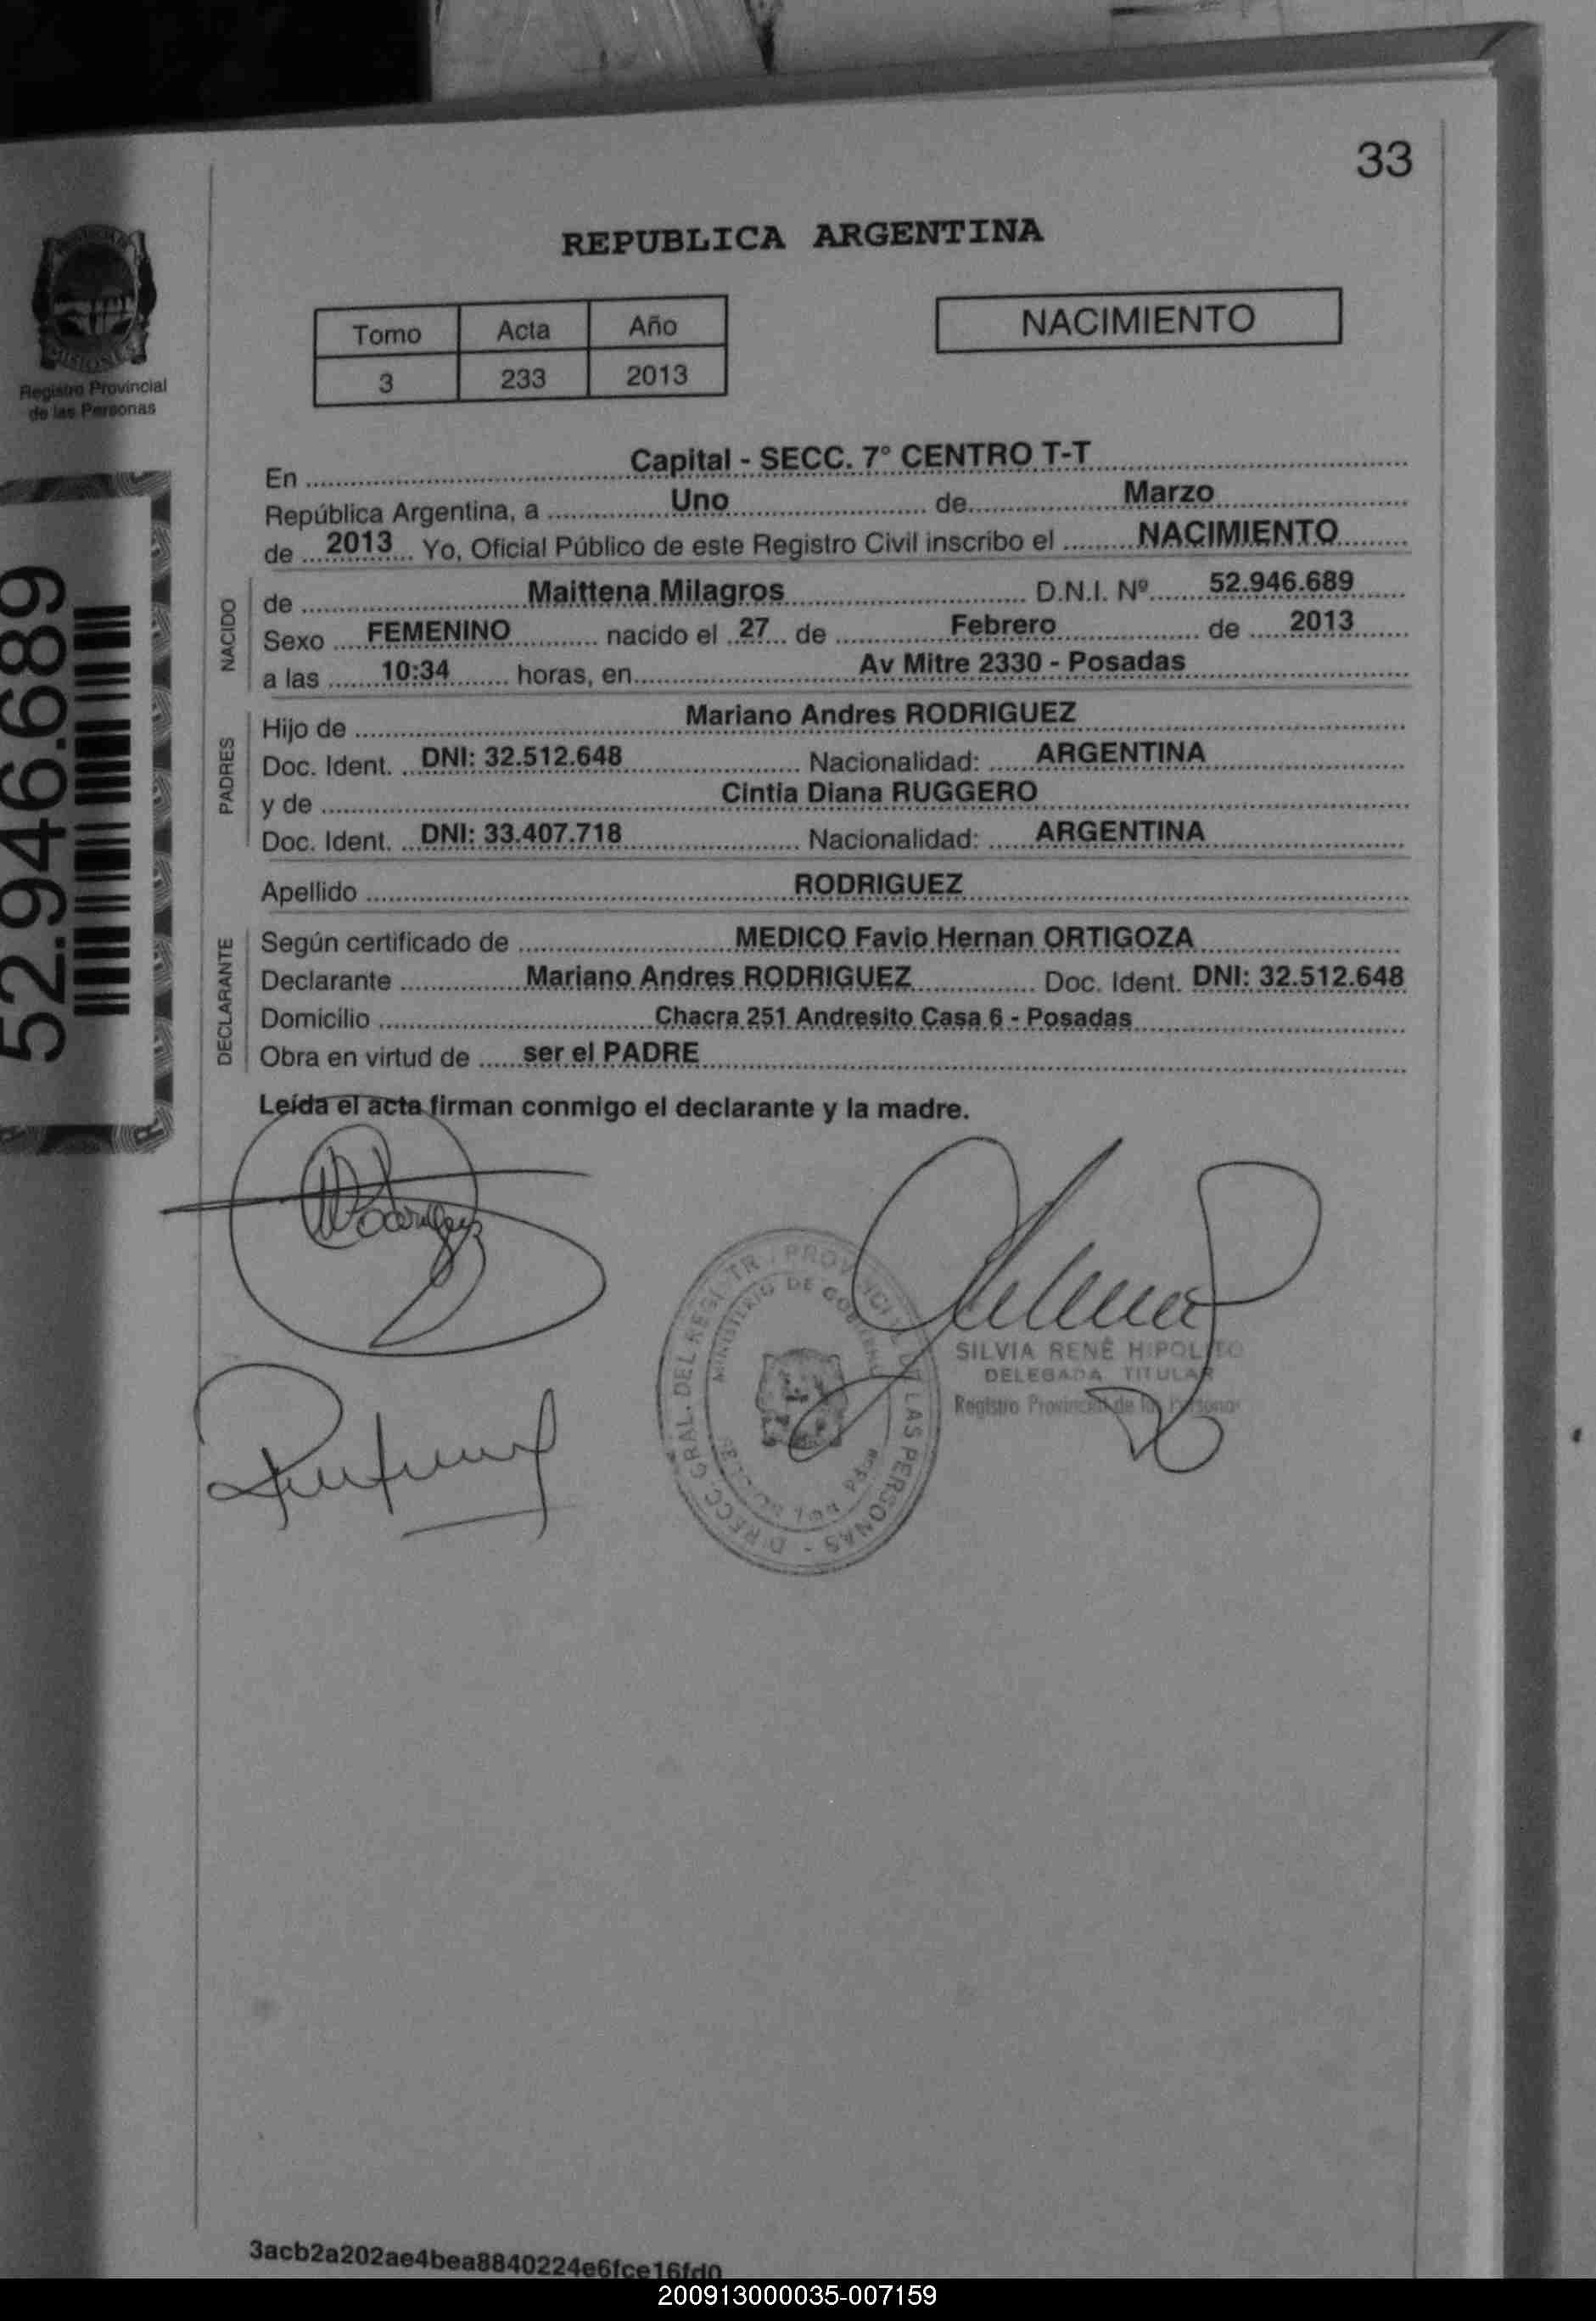 33
REPUBLICA ARGENTINA
Tomo Acta Año
3 233 2013
NACIMIENTO
MISIONES
Registro Provincial
de las Personas
52.946.689
En Capital - SECC. 7° CENTRO T-T
República Argentina, a Uno de Marzo
de 2013 Yo, Oficial Público de este Registro Civil inscribo el NACIMIENTO
NACIDO
de Maittena Milagros D.N.I. Nº 52.946.689
Sexo FEMENINO nacido el 27 de Febrero de 2013
a las 10:34 horas, en Av Mitre 2330 - Posadas
PADRES
Hijo de Mariano Andres RODRIGUEZ
Doc. Ident. DNI: 32.512.648 Nacionalidad: ARGENTINA
y de Cintia Diana RUGGERO
Doc. Ident. DNI: 33.407.718 Nacionalidad: ARGENTINA
Apellido RODRIGUEZ
DECLARANTE
Según certificado de MEDICO Favio Hernan ORTIGOZA
Declarante Mariano Andres RODRIGUEZ Doc. Ident. DNI: 32.512.648
Domicilio Chacra 251 Andresito Casa 6 - Posadas
Obra en virtud de ser el PADRE
Leída el acta firman conmigo el declarante y la madre.
DIRECC. GRAL. DEL REGISTR. PROVINCIAL DE LAS PERSONAS -
MINISTERIO DE GOBIERNO
SILVIA RENÉ HIPOLITO
DELEGADA TITULAR
Registro Provincial de las Personas
3acb2a202ae4bea8840224e6fce16fd0
200913000035-007159